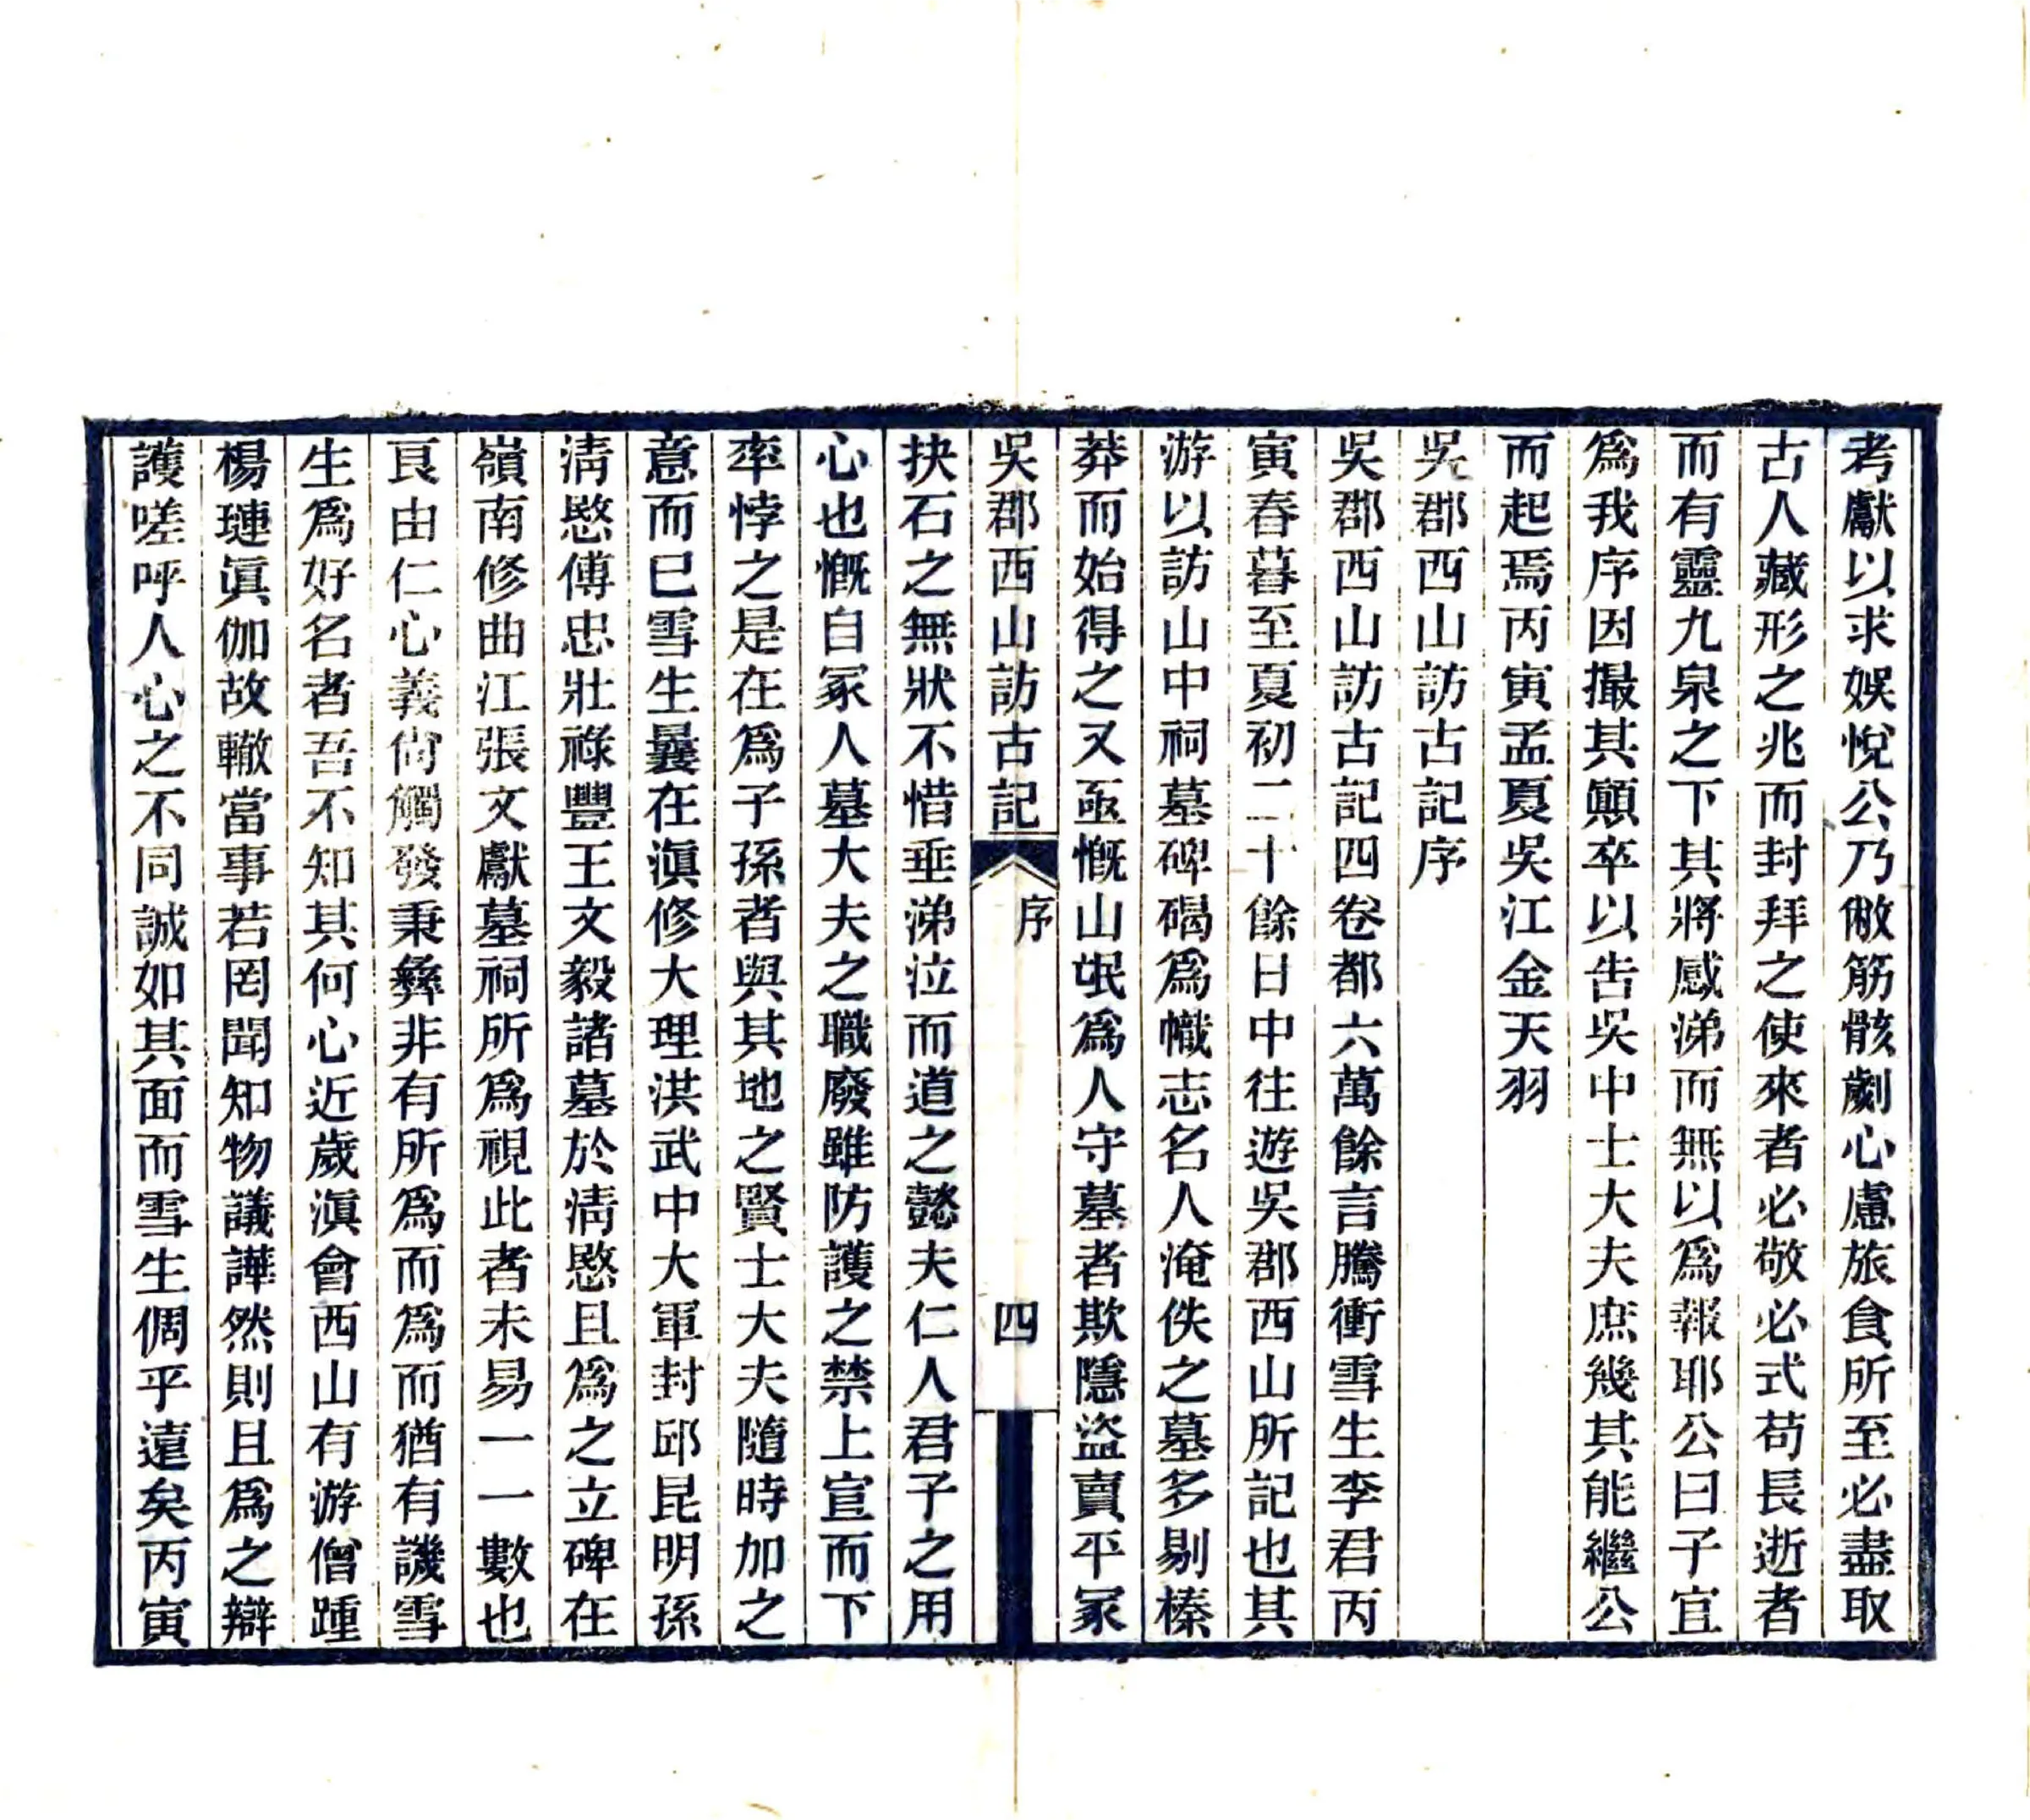 考獻以求娛悅公乃敝筋骸劇心慮旅食所至必盡取
古人藏形之兆而封拜之使來者必敬必式苟長逝者
而有靈九泉之下其將感涕而無以爲報耶公曰子宜
爲我序因撮其顚卒以吿吳中士大夫庶幾其能繼公
而起焉丙寅孟夏吳江金天羽
吳郡西山訪古記序
吳郡西山訪古記四卷都六萬餘言騰衝雪生李君丙
寅春暮至夏初二十餘日中往遊吳郡西山所記也其
游以訪山中祠墓碑碣爲幟志名人淹佚之墓多剔榛
莽而始得之又亟慨山氓爲人守墓者欺隱盜賣平冢
吳郡西山訪古記
序
四
抉石之無狀不惜垂涕泣而道之懿夫仁人君子之用
心也慨自冢人墓大夫之職廢雖防護之禁上宣而下
率悖之是在爲子孫者與其地之賢士大夫隨時加之
意而已雪生曩在滇修大理洪武中大軍封邱昆明孫
淸愍傅忠壯祿豐王文毅諸墓於淸愍且爲之立碑在
嶺南修曲江張文獻墓祠所爲視此者未易一一數也
良由仁心義尙觸發秉彝非有所爲而爲而猶有譏雪
生爲好名者吾不知其何心近歲滇會西山有游僧踵
楊璉眞伽故轍當事若罔聞知物議譁然則且爲之辯
護嗟呼人心之不同誠如其面而雪生倜乎遠矣丙寅